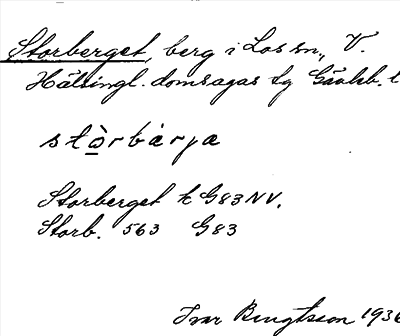 Storberget, berg i Los sn., V.
Hälsingl. domsagas tg Gävleb. l
stòrbàrja
Storberget k G83NV.
Storb. 563 G83
Ivar Bengtsson 1936